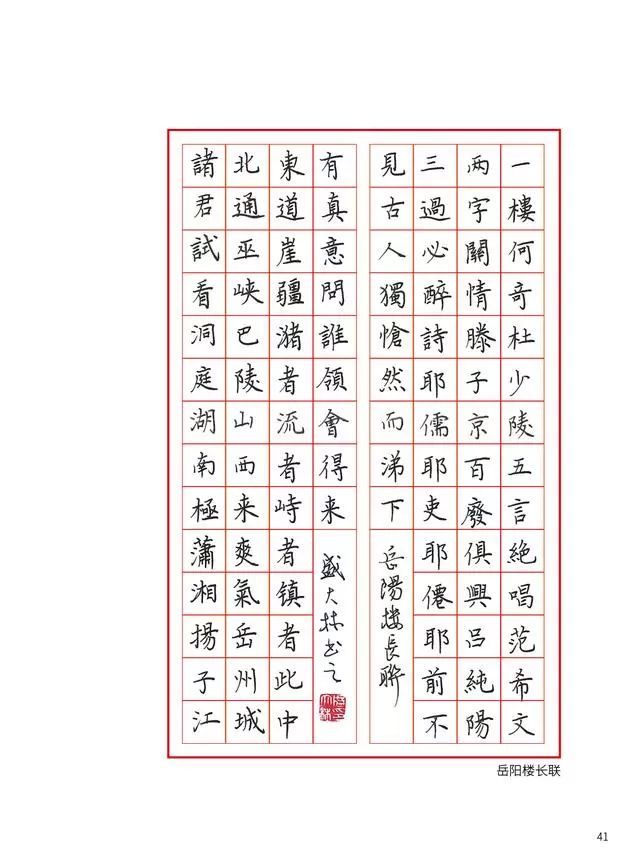 一樓何奇杜少陵五言絶唱范希文
两字關情滕子京百廢俱興呂純陽
三過必醉詩耶儒耶吏耶僊耶前不
見古人獨愴然而涕下
岳陽楼長聯
諸君試看洞庭湖南極瀟湘揚子江
北通巫峡巴陵山西来爽氣岳州城
東道崖疆潴者流者峙者镇者此中
有真意問誰領會得来
盛大林书之
岳阳楼长联
41